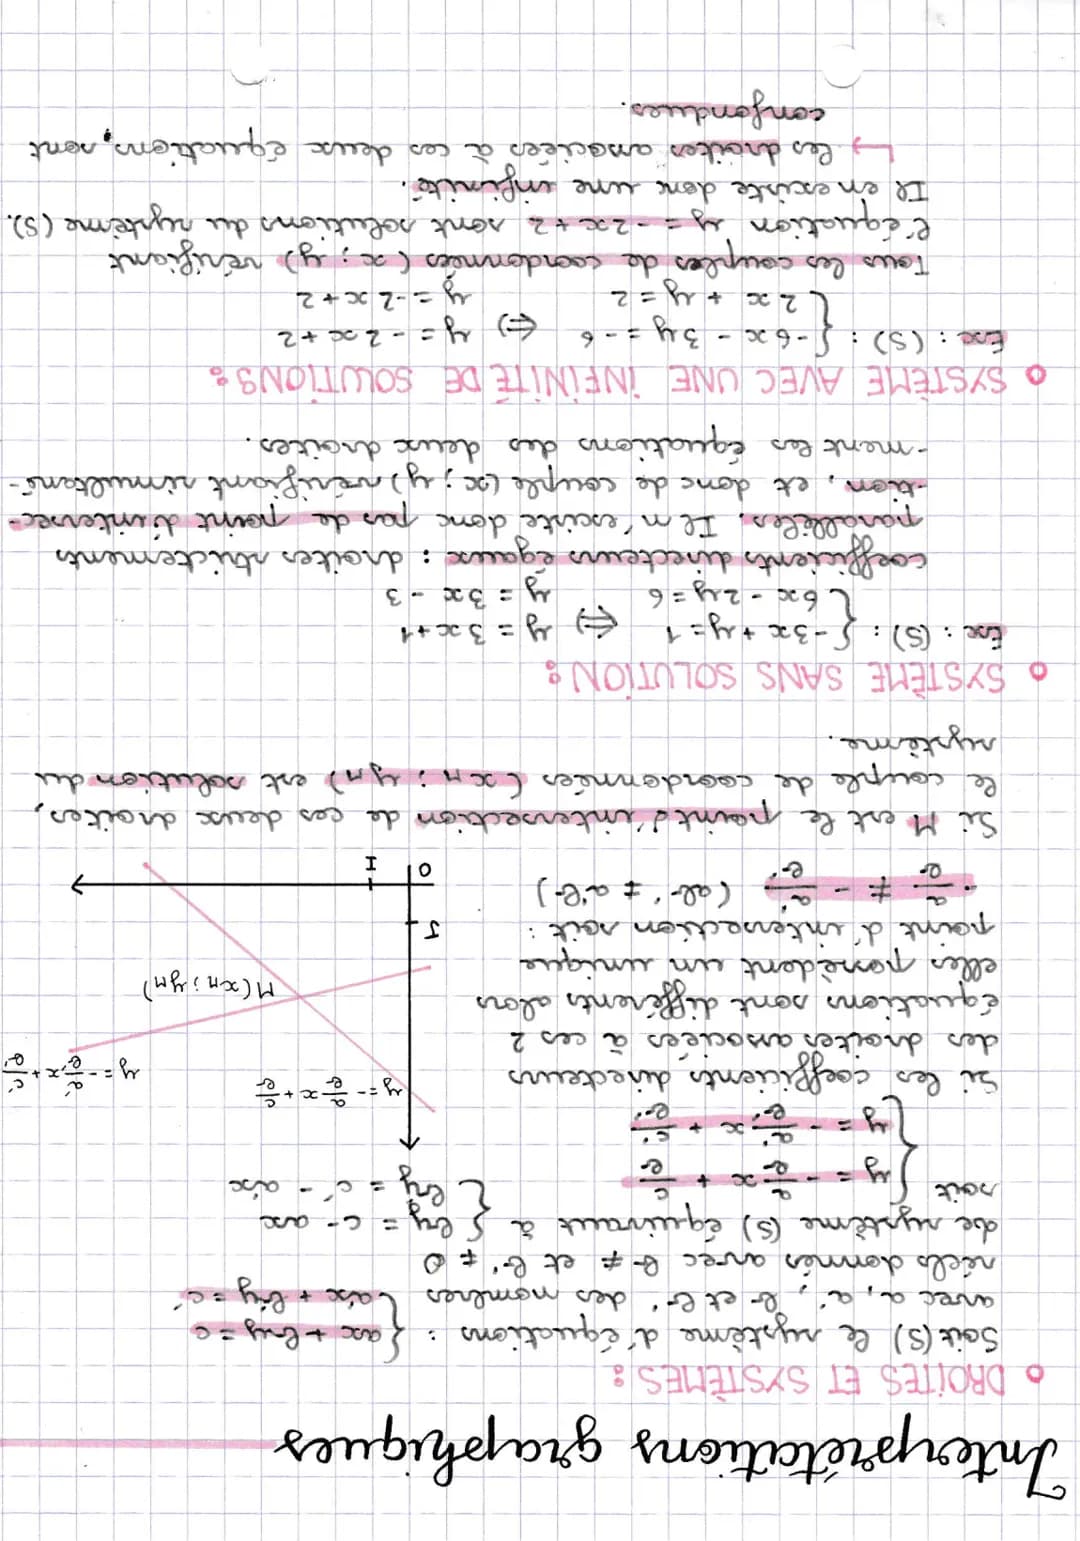 Interprétations graphiques
○ DROITES ET SYSTÈMES :
Soit (S) le système d'équations : { ax + by = c
avec a, a', b et b', des nombres { a'x + b'y = c'
réels donnés avec b ≠ et b' ≠ 0
de système (S) équivaut à { by = c - ax
{ by = c' - a'x
soit { y = - a/b x + c/b
{ y = - a'/b' x + c'/b'
Si les coefficients directeurs
des droites associées à ces 2
équations sont différents alors
elles possèdent un unique
point d'intersection soit :
- a/b ≠ - a'/b' (ab' ≠ a'b)
y = - a/b x + c/b
y = - a'/b' x + c'/b'
M(xM ; yM)
J
O
I
Si M est le point d'intersection de ces deux droites,
le couple de coordonnées (xM ; yM) est solution du
système.
○ SYSTÈME SANS SOLUTION :
Ex : (S) : { -3x + y = 1 ⇔ y = 3x + 1
{ 6x - 2y = 6 y = 3x - 3
coefficients directeurs égaux : droites strictements
parallèles. Il n'existe donc pas de point d'intersec-
-tion, et donc de couple (x ; y) vérifiant simultané-
-ment les équations des deux droites.
○ SYSTÈME AVEC UNE INFINITÉ DE SOLUTIONS :
Ex : (S) : { -6x - 3y = -6 ⇔ y = -2x + 2
{ 2x + y = 2 y = -2x + 2
Tous les couples de coordonnées (x ; y) vérifiant
l'équation y = -2x + 2 sont solutions du système (S).
Il en existe donc une infinité.
↳ les droites associées à ces deux équations, sont
confondues.